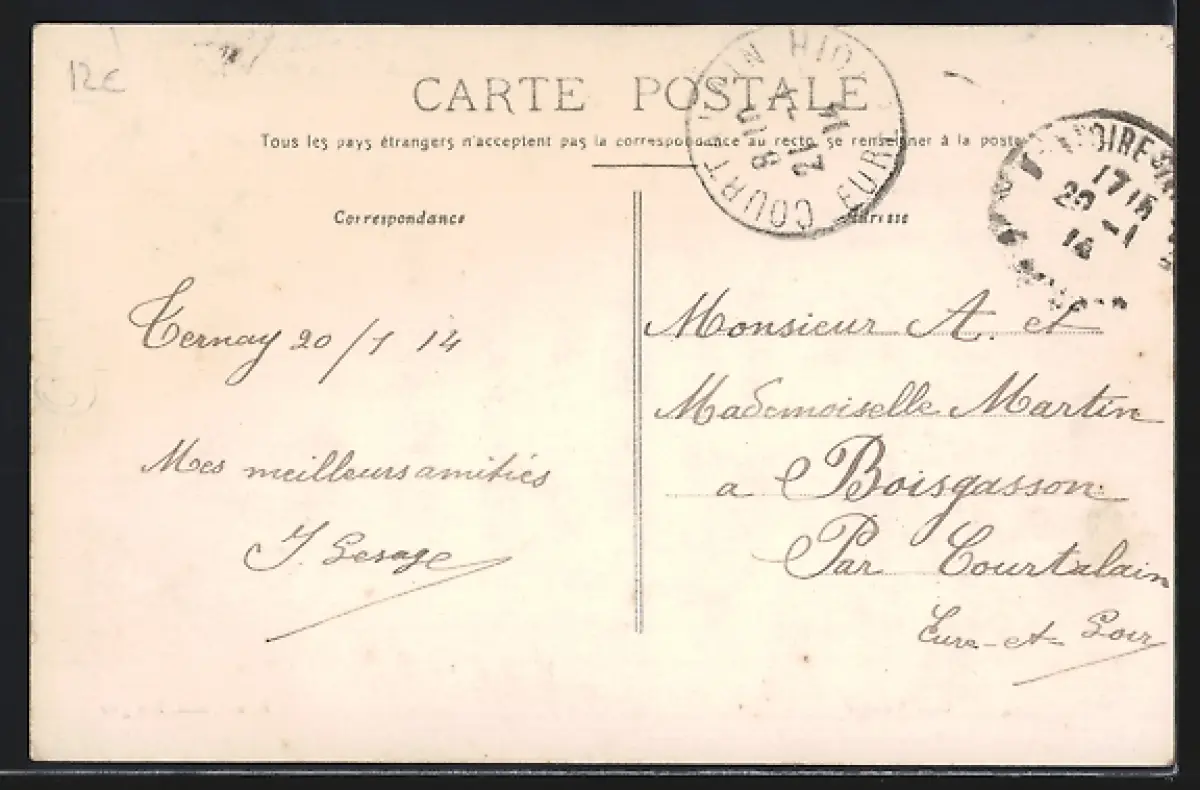 12c
CARTE POSTALE
Tous les pays étrangers n'acceptent pas la correspondance au recto, se renseigner à la poste
Correspondance
Adresse
8 10
21 -1
14
17 15
20 -1
14
Ternay 20/1 14
Mes meilleurs amitiés
J. Lesage
Monsieur A. et
Mademoiselle Martin
a Boisgasson
Par Courtalain
Eure-et Loir